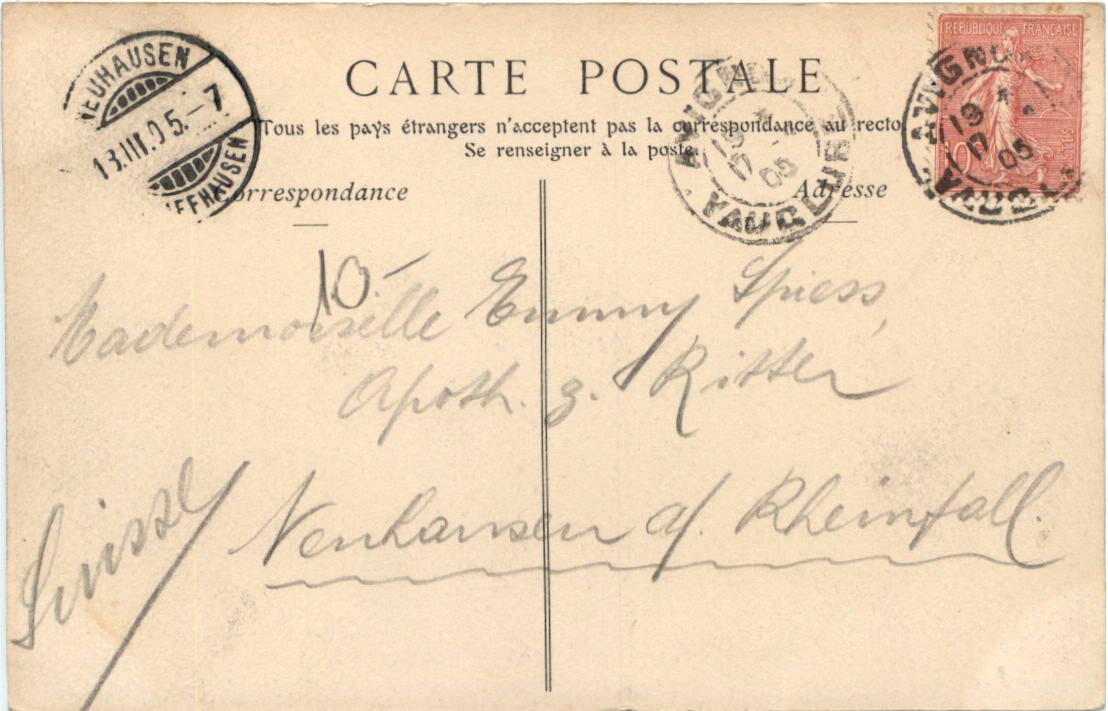 CARTE POSTALE
Tous les pays étrangers n'acceptent pas la correspondance au recto
Se renseigner à la poste.
Correspondance
Adresse
NEUHAUSEN
13.III.05.-7
RÉPUBLIQUE FRANÇAISE
AVIGNON
VAUCLUSE
AVIGNON
10-
Mademoiselle Emmy Spiess,
Apoth. z. Ritter
Neuhausen a/. Rheinfall.
Suisse